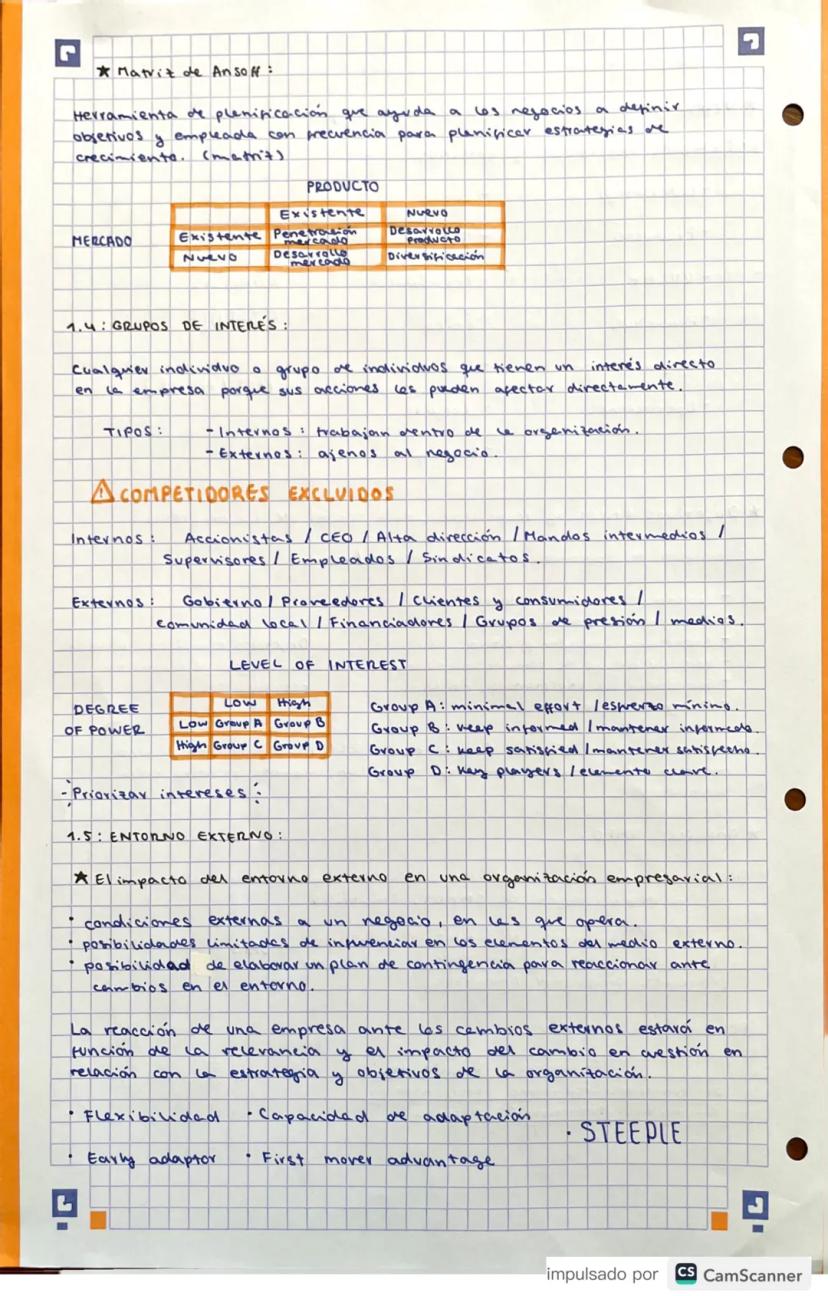 ★ Matriz de Ansoff :
Herramienta de planificación que ayuda a los negocios a definir
objetivos y empleada con frecuencia para planificar estrategias de
crecimiento. (matriz)
PRODUCTO
Existente Nuevo
MERCADO Existente Penetración mercado Desarrollo producto
Nuevo Desarrollo mercado Diversificación
1.4 : GRUPOS DE INTERÉS :
Cualquier individuo o grupo de individuos que tienen un interés directo
en la empresa porque sus acciones les pueden afectar directamente.
TIPOS : - Internos : trabajan dentro de la organización.
- Externos : ajenos al negocio.
⚠ COMPETIDORES EXCLUIDOS
Internos : Accionistas / CEO / Alta dirección / Mandos intermedios /
Supervisores / Empleados / Sindicatos.
Externos : Gobierno / Proveedores / Clientes y consumidores /
comunidad local / Financiadores / Grupos de presión / medios.
LEVEL OF INTEREST
DEGREE OF POWER
Low High
Low Group A Group B
High Group C Group D
Group A : minimal effort / esfuerzo mínimo.
Group B : keep informed / mantener informado.
Group C : keep satisfied / mantener satisfecho.
Group D : key players / elemento clave.
- Priorizar intereses :
1.5 : ENTORNO EXTERNO :
★ El impacto del entorno externo en una organización empresarial :
· condiciones externas a un negocio, en las que opera.
· posibilidades limitadas de influenciar en los elementos del medio externo.
· posibilidad de elaborar un plan de contingencia para reaccionar ante
cambios en el entorno.
La reacción de una empresa ante los cambios externos estará en
función de la relevancia y el impacto del cambio en cuestión en
relación con la estrategia y objetivos de la organización.
· Flexibilidad · Capacidad de adaptación
· STEEPLE
· Early adaptor · First mover advantage
impulsado por CS CamScanner